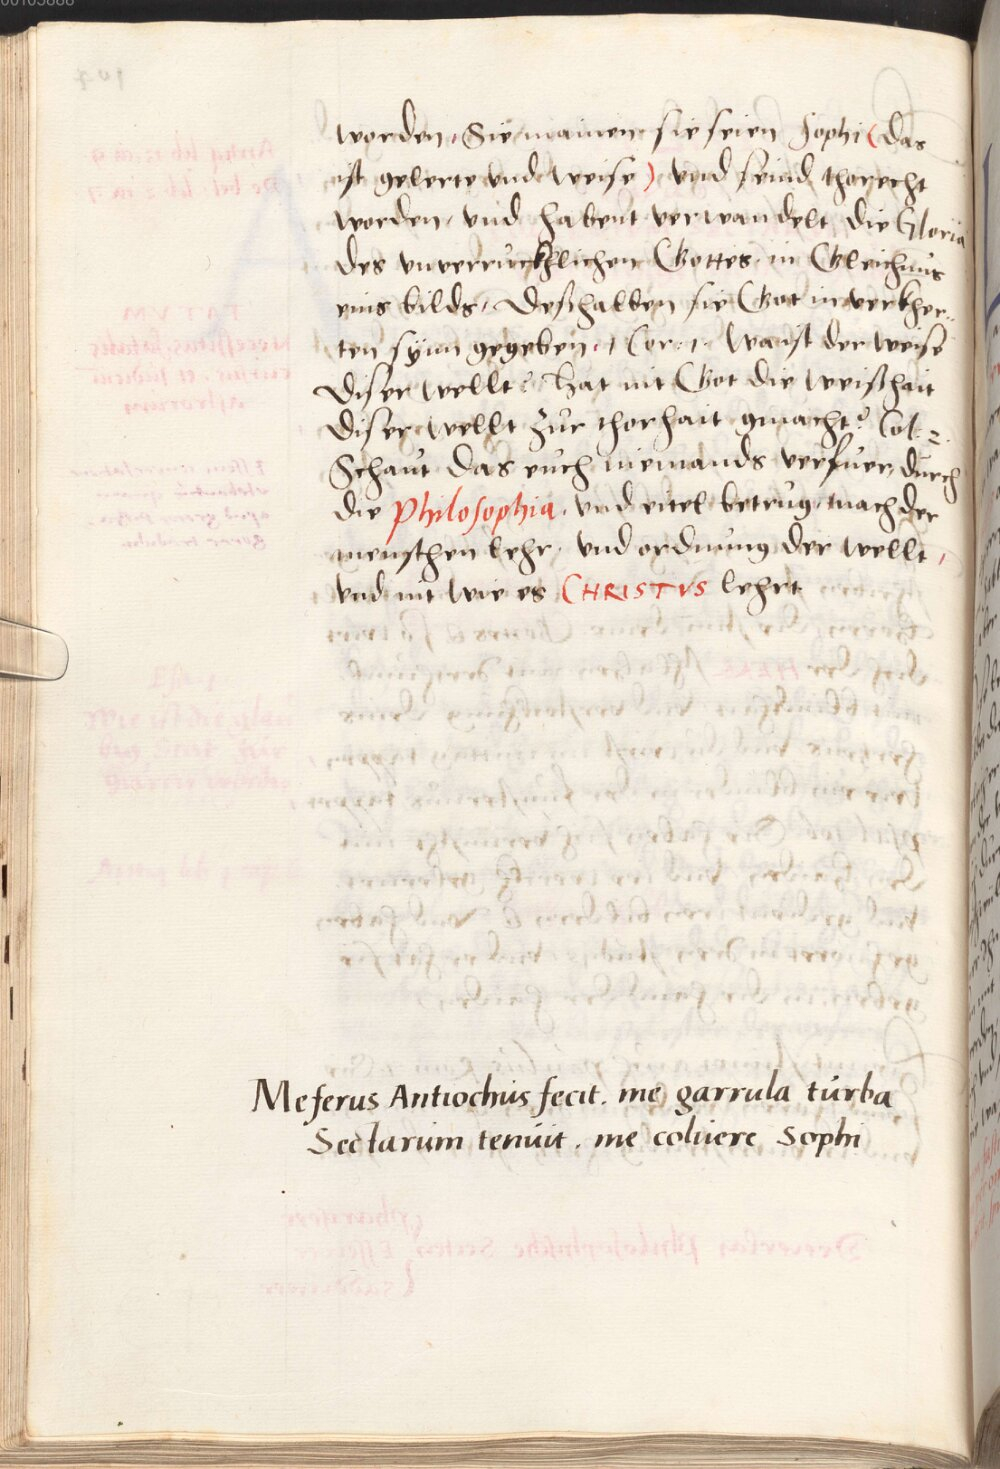 worden, Sie mainen sie seien Sophi (das
ist gelerte vnd weise) vnd seind thorecht
worden, vnd habent verwandelt die Gloria
des vnverruckhlichen Gottes in Gleichnus
eins bilds, Deßhalben sie Got in verkher-
ten synn gegeben, 1 Cor: 1. Wa ist der weise
diser wellt? Hat nit Got die weißhait
diser wellt zur thorhait gmacht? Col. 2.
Schaut das euch niemands verfuer, durch
die Philosophia, vnd eitel betrug, nach der
menschen lehr, vnd ordnung der wellt,
vnd nit wie es CHRISTVS lehrt.
Me ferus Antiochus fecit. me garrula turba
Sectarum tenuit. me coluere Sophi